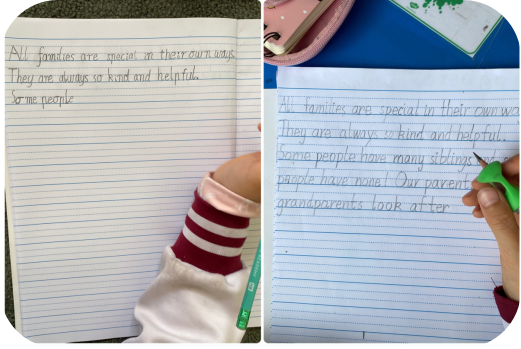 All families are special in their own ways.
They are always so kind and helpful.
Some people
All families are special in their own wa
They are always so kind and helpful.
Some people have many siblings
people have none! Our parent
grandparents look after